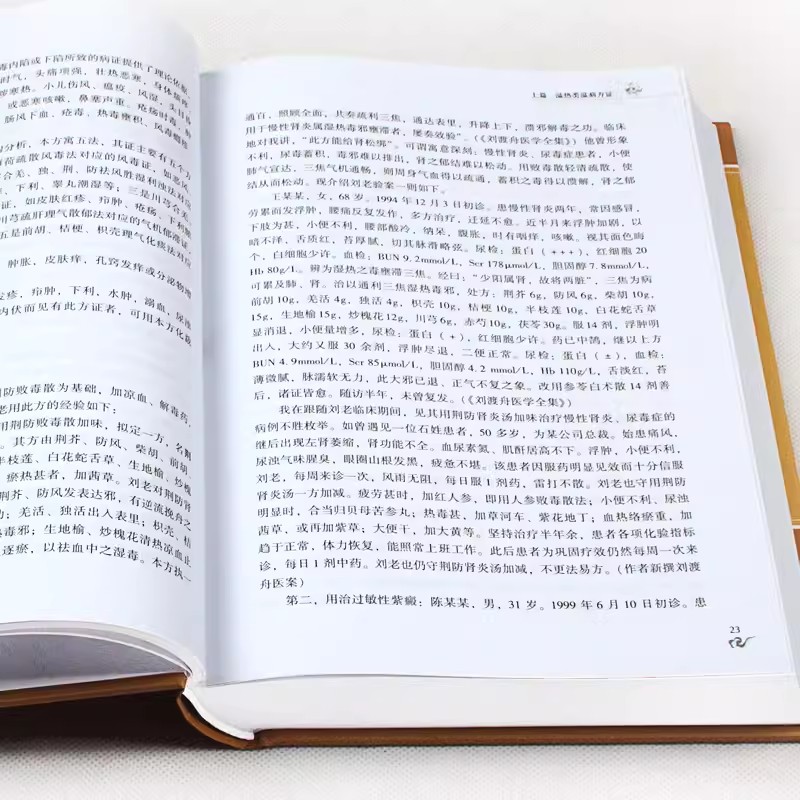 毒内陷或下陷所致的病证提供了理论依据
时气，头痛项强，壮热恶寒，身体
寒热。小儿伤风、瘟疫、风湿，头目
或恶寒咳嗽，鼻塞声重。疮疡时毒，
肠风下血，疮毒，热毒瘀积，风毒瘾疹
分析，本方寓五法，其证主要有五个方
荷疏散风毒法对应的风毒证，如恶风
合羌、独、荆、防祛风胜湿利浊法对应
、下利、睾丸潮湿等；三是川芎合羌
证，如皮肤红疹、疖肿、疮疡、下利
芎疏肝理气散郁法对应的气机郁滞证
五是前胡、桔梗、枳壳理气化痰法对应
肿胀，皮肤痒，孔窍发痒或分泌物增
发疹、疖肿，下利，水肿，溺血，尿浊
内伏而见有此方证者，可用本方化裁
荆防败毒散为基础，加凉血、解毒药，
老用此方的经验如下：
用荆防败毒散加味，拟定一方，名荆
。其方由荆芥、防风、柴胡、前胡、
半枝莲、白花蛇舌草、生地榆、炒槐
瘀热甚者，加茜草。刘老对荆防肾
荆芥、防风发表达邪，有逆流挽舟之
动；羌活、独活出入表里；枳壳、桔
毒邪；生地榆、炒槐花清热凉血止
逐瘀，以祛血中之湿毒。本方执一
上篇 湿热类温病方证
通百，照顾全面，共奏疏利三焦，通达表里，升降上下，溃邪解毒之功。临床
用于慢性肾炎属湿热毒邪壅滞者，屡奏效验”。（《刘渡舟医学全集》）他曾形象
地对我讲，“此方能给肾松绑”。可谓寓意深刻：慢性肾炎、尿毒症患者，小便
不利，尿毒蓄积，毒邪难以排出，肾之郁结难以松动。用败毒散轻清疏散，使
肺气宣达，三焦气机通畅，则周身气血得以疏通，蓄积之毒得以溃解，肾之郁
结从而松动。现介绍刘老验案一则如下。
王某某，女，68 岁。1994 年 12 月 3 日初诊。患慢性肾炎两年，常因感冒，
劳累而发浮肿，腰痛反复发作，多方治疗，迁延不愈。近半月来浮肿加剧，以
下肢为甚，小便不利，腰部酸冷，纳呆，腹胀，时有咽痒，咳嗽。视其面色晦
暗不泽，舌质红，苔厚腻，切其脉滑略弦。尿检：蛋白（+++），红细胞 20
个，白细胞少许。血检：BUN 9.2mmol/L，Scr 178μmol/L，胆固醇 7.8mmol/L，
Hb 80g/L。辨为湿热之毒壅滞三焦。经曰：“少阳属肾，故将两脏”，三焦为病
可累及肺、肾。治以通利三焦湿热毒邪，处方：荆芥 6g，防风 6g，柴胡 10g，
前胡 10g，羌活 4g，独活 4g，枳壳 10g，桔梗 10g，半枝莲 10g，白花蛇舌草
15g，生地榆 15g，炒槐花 12g，川芎 6g，赤芍 10g，茯苓 30g。服 14 剂，浮肿明
显消退，小便量增多，尿检：蛋白（+），红细胞少许。药已中鹄，继以上方
出入，大约又服 30 余剂，浮肿尽退，二便正常。尿检：蛋白（±），血检：
BUN 4.9mmol/L，Scr 85μmol/L，胆固醇 4.2mmol/L，Hb 110g/L，舌淡红，苔
薄微腻，脉濡软无力，此大邪已退、正气不复之象。改用参苓白术散 14 剂善
后，诸证皆愈。随访半年，未曾复发。（《刘渡舟医学全集》）
我在跟随刘老临床期间，见其用荆防肾炎汤加味治疗慢性肾炎、尿毒症的
病例不胜枚举。如曾遇见一位石姓患者，50 多岁，为某公司总裁。始患痛风，
继后出现左肾萎缩，肾功能不全。血尿素氮、肌酐居高不下。浮肿，小便不利，
尿浊气味腥臭，眼圈山根发黑，疲惫不堪。该患者因服药明显见效而十分信服
刘老，每周来诊一次，风雨无阻，每日服 1 剂药，雷打不散。刘老也守用荆防
肾炎汤一方加减。疲劳甚时，加红人参，即用人参败毒散法；小便不利、尿浊
明显时，合当归贝母苦参丸；热毒甚，加草河车、紫花地丁；血热络瘀重，加
茜草，或再加紫草；大便干，加大黄等。坚持治疗半年余，患者各项化验指标
趋于正常，体力恢复，能照常上班工作。此后患者为巩固疗效仍然每周一次来
诊，每日 1 剂中药。刘老也仍守荆防肾炎汤加减，不更法易方。（作者新撰刘渡
舟医案）
第二，用治过敏性紫癜：陈某某，男，31 岁。1999 年 6 月 10 日初诊。患
23